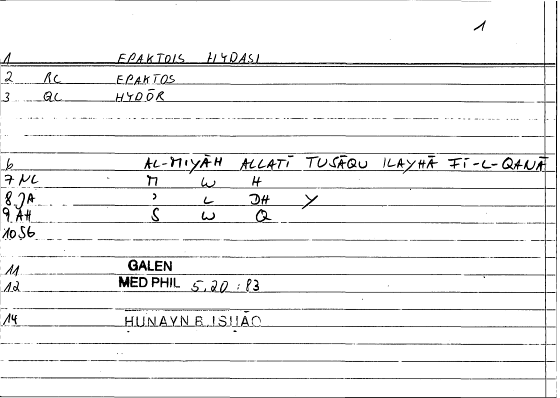 1
1 EPAKTOIS HYDASI
2 RC EPAKTOS
3 QC HYDŌR
6 AL-MIYĀH ALLATĪ TUSĀQU ILAYHĀ FĪ-L-QANĀ
7 NL M W H
8 JA ʾ L DH Y
9 AH S W Q
10 SG
11 GALEN
12 MED PHIL 5,20 : 83
14 HUNAYN B. ISḤĀQ